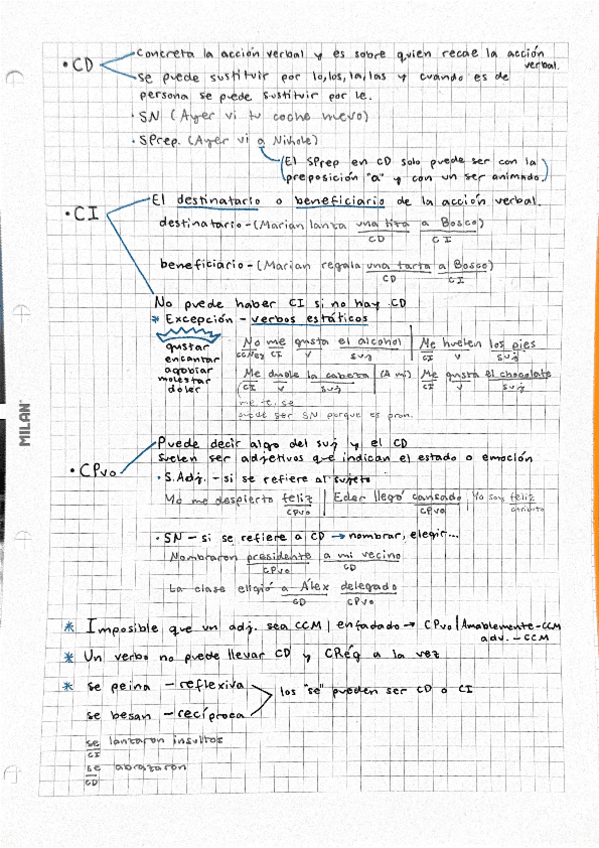 • CD
Concreta la acción verbal y es sobre quien recae la acción verbal.
se puede sustituir por lo, los, la, las y cuando es de
persona se puede sustituir por le.
• SN (Ayer vi tu coche nuevo)
• SPrep. (Ayer vi a Nichole)
(El SPrep en CD solo puede ser con la
preposición "a" y con un ser animado.)
• CI
El destinatario o beneficiario de la acción verbal.
destinatario - (Marian lanza una tiza a Bosco)
CD CI
beneficiario - (Marian regala una tarta a Bosco)
CD CI
No puede haber CI si no hay CD
* Excepción - verbos estáticos
gustar
encantar
agobiar
molestar
doler
No me gusta el alcohol | Me huelen los pies
CI V Suj CI V Suj
Me duele la cabeza | (A mi) Me gusta el chocolate
CI V Suj CI V Suj
me, te, se
puede ser SN porque es pron.
• CPvo
Puede decir algo del suj y el CD
Suelen ser adjetivos que indican el estado o emoción
• S.Adj. - si se refiere al sujeto
Yo me despierto feliz | Eder llegó cansado | Yo soy feliz
CPvo CPvo atributo
• SN - si se refiere a CD → nombrar, elegir...
Nombraron presidente a mi vecino
CPvo CD
La clase eligió a Álex delegado
CD CPvo
* Imposible que un adj. sea CCM | enfadado → CPvo | Amablemente - CCM
adv. - CCM
* Un verbo no puede llevar CD y CRég a la vez
* se peina - reflexiva
los "se" pueden ser CD o CI
se besan - recíproca
se lanzaron insultos
CI
se abrazaron
CD
MILAN